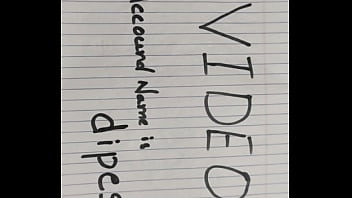 VIDEO
Account Name is
dipes